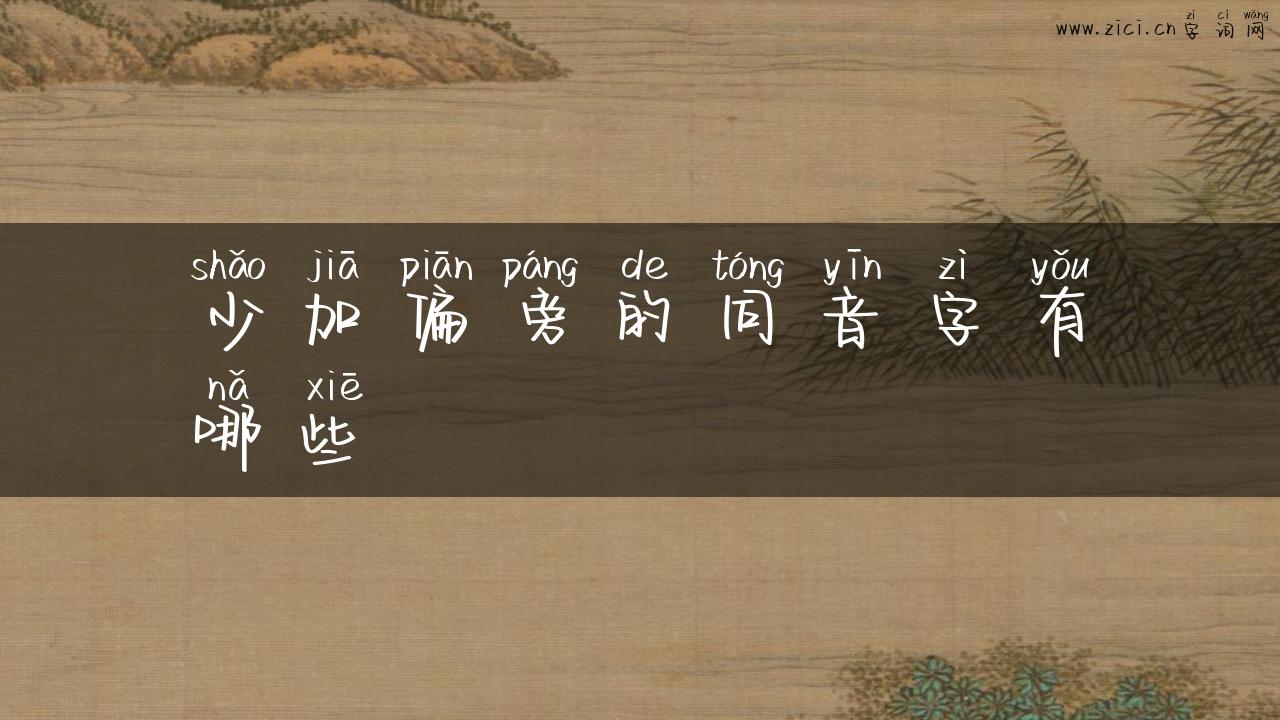 zì cí wǎng
www.zici.cn 字 词 网
shǎo jiā piān páng de tóng yīn zì yǒu
少 加 偏 旁 的 同 音 字 有
nǎ xiē
哪 些